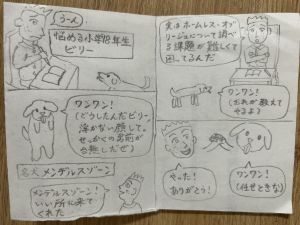 うーん
悩める小学18年生
ビリー
実はホームレス・オブ・
リージュについて調べ
る課題が難しくて
困ってるんだ
ワンワン！
(どうしたんだビリー
浮かない顔して。
せっかくの名前が
台無しだぜ)
ワンワン！
(おれが教えて
やるよ)
名犬 メンデルスゾーン
メンデルスゾーン！
いい所に来て
くれた
やった！
ありがとう！
ワンワン！
(任せときな)